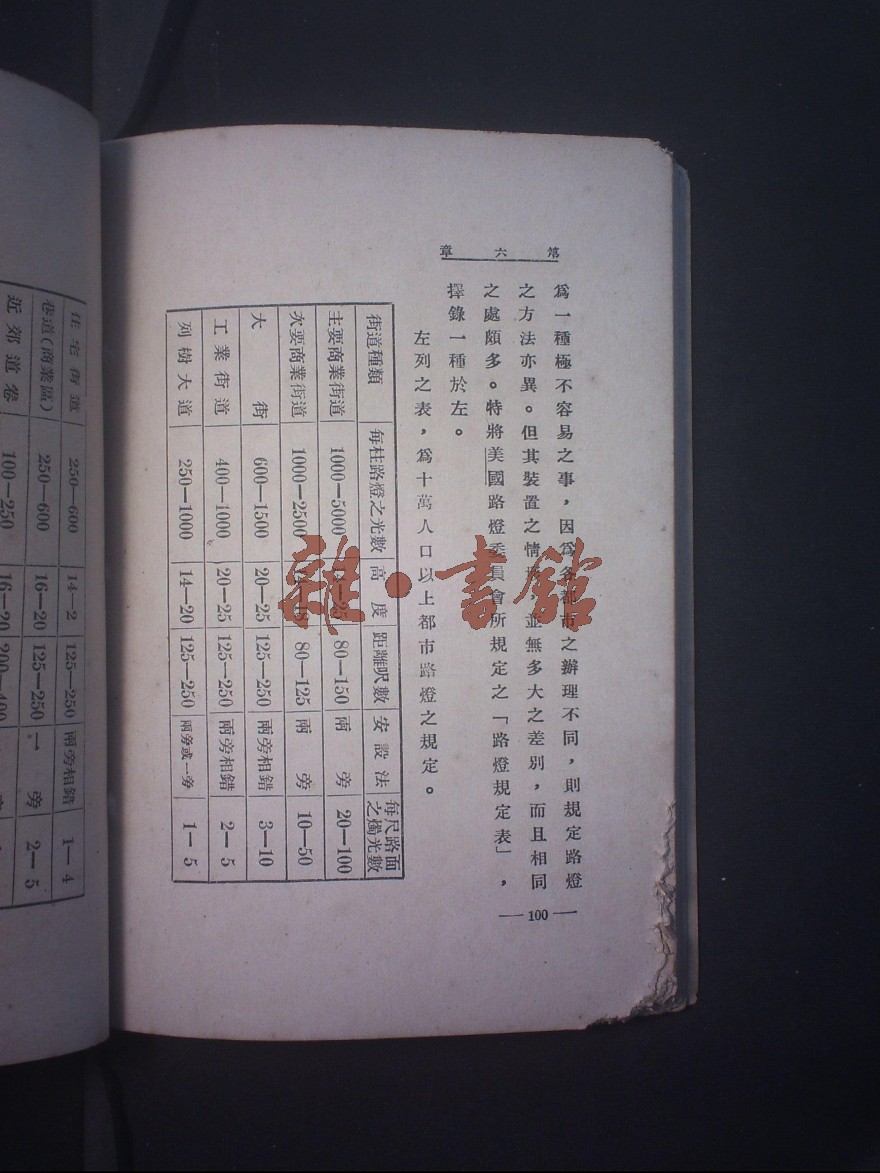 第六章
為一種極不容易之事，因為各都市之辦理不同，則規定路燈
之方法亦異。但其裝置之情形，並無多大之差別，而且相同
之處頗多。特將美國路燈委員會所規定之「路燈規定表」，
擇錄一種於左。
左列之表，為十萬人口以上都市路燈之規定。
街道種類 每柱路燈之光數 高度 距離呎數 安設法 每尺路面之燭光數
主要商業街道 1000—5000 14—25 80—150 兩旁 20—100
次要商業街道 1000—2500 14—18 80—125 兩旁 10—50
大街 600—1500 20—25 125—250 兩旁相錯 3—10
工業街道 400—1000 20—25 125—250 兩旁相錯 2—5
列樹大道 250—1000 14—20 125—250 兩旁或一旁 1—5
—100—
住宅街道 250—600 14—2 125—250 兩旁相錯 1—4
巷道(商業區) 250—600 16—20 125—250 一旁 2—5
近郊道巷 100—250 16—20 200—400
雜·書館